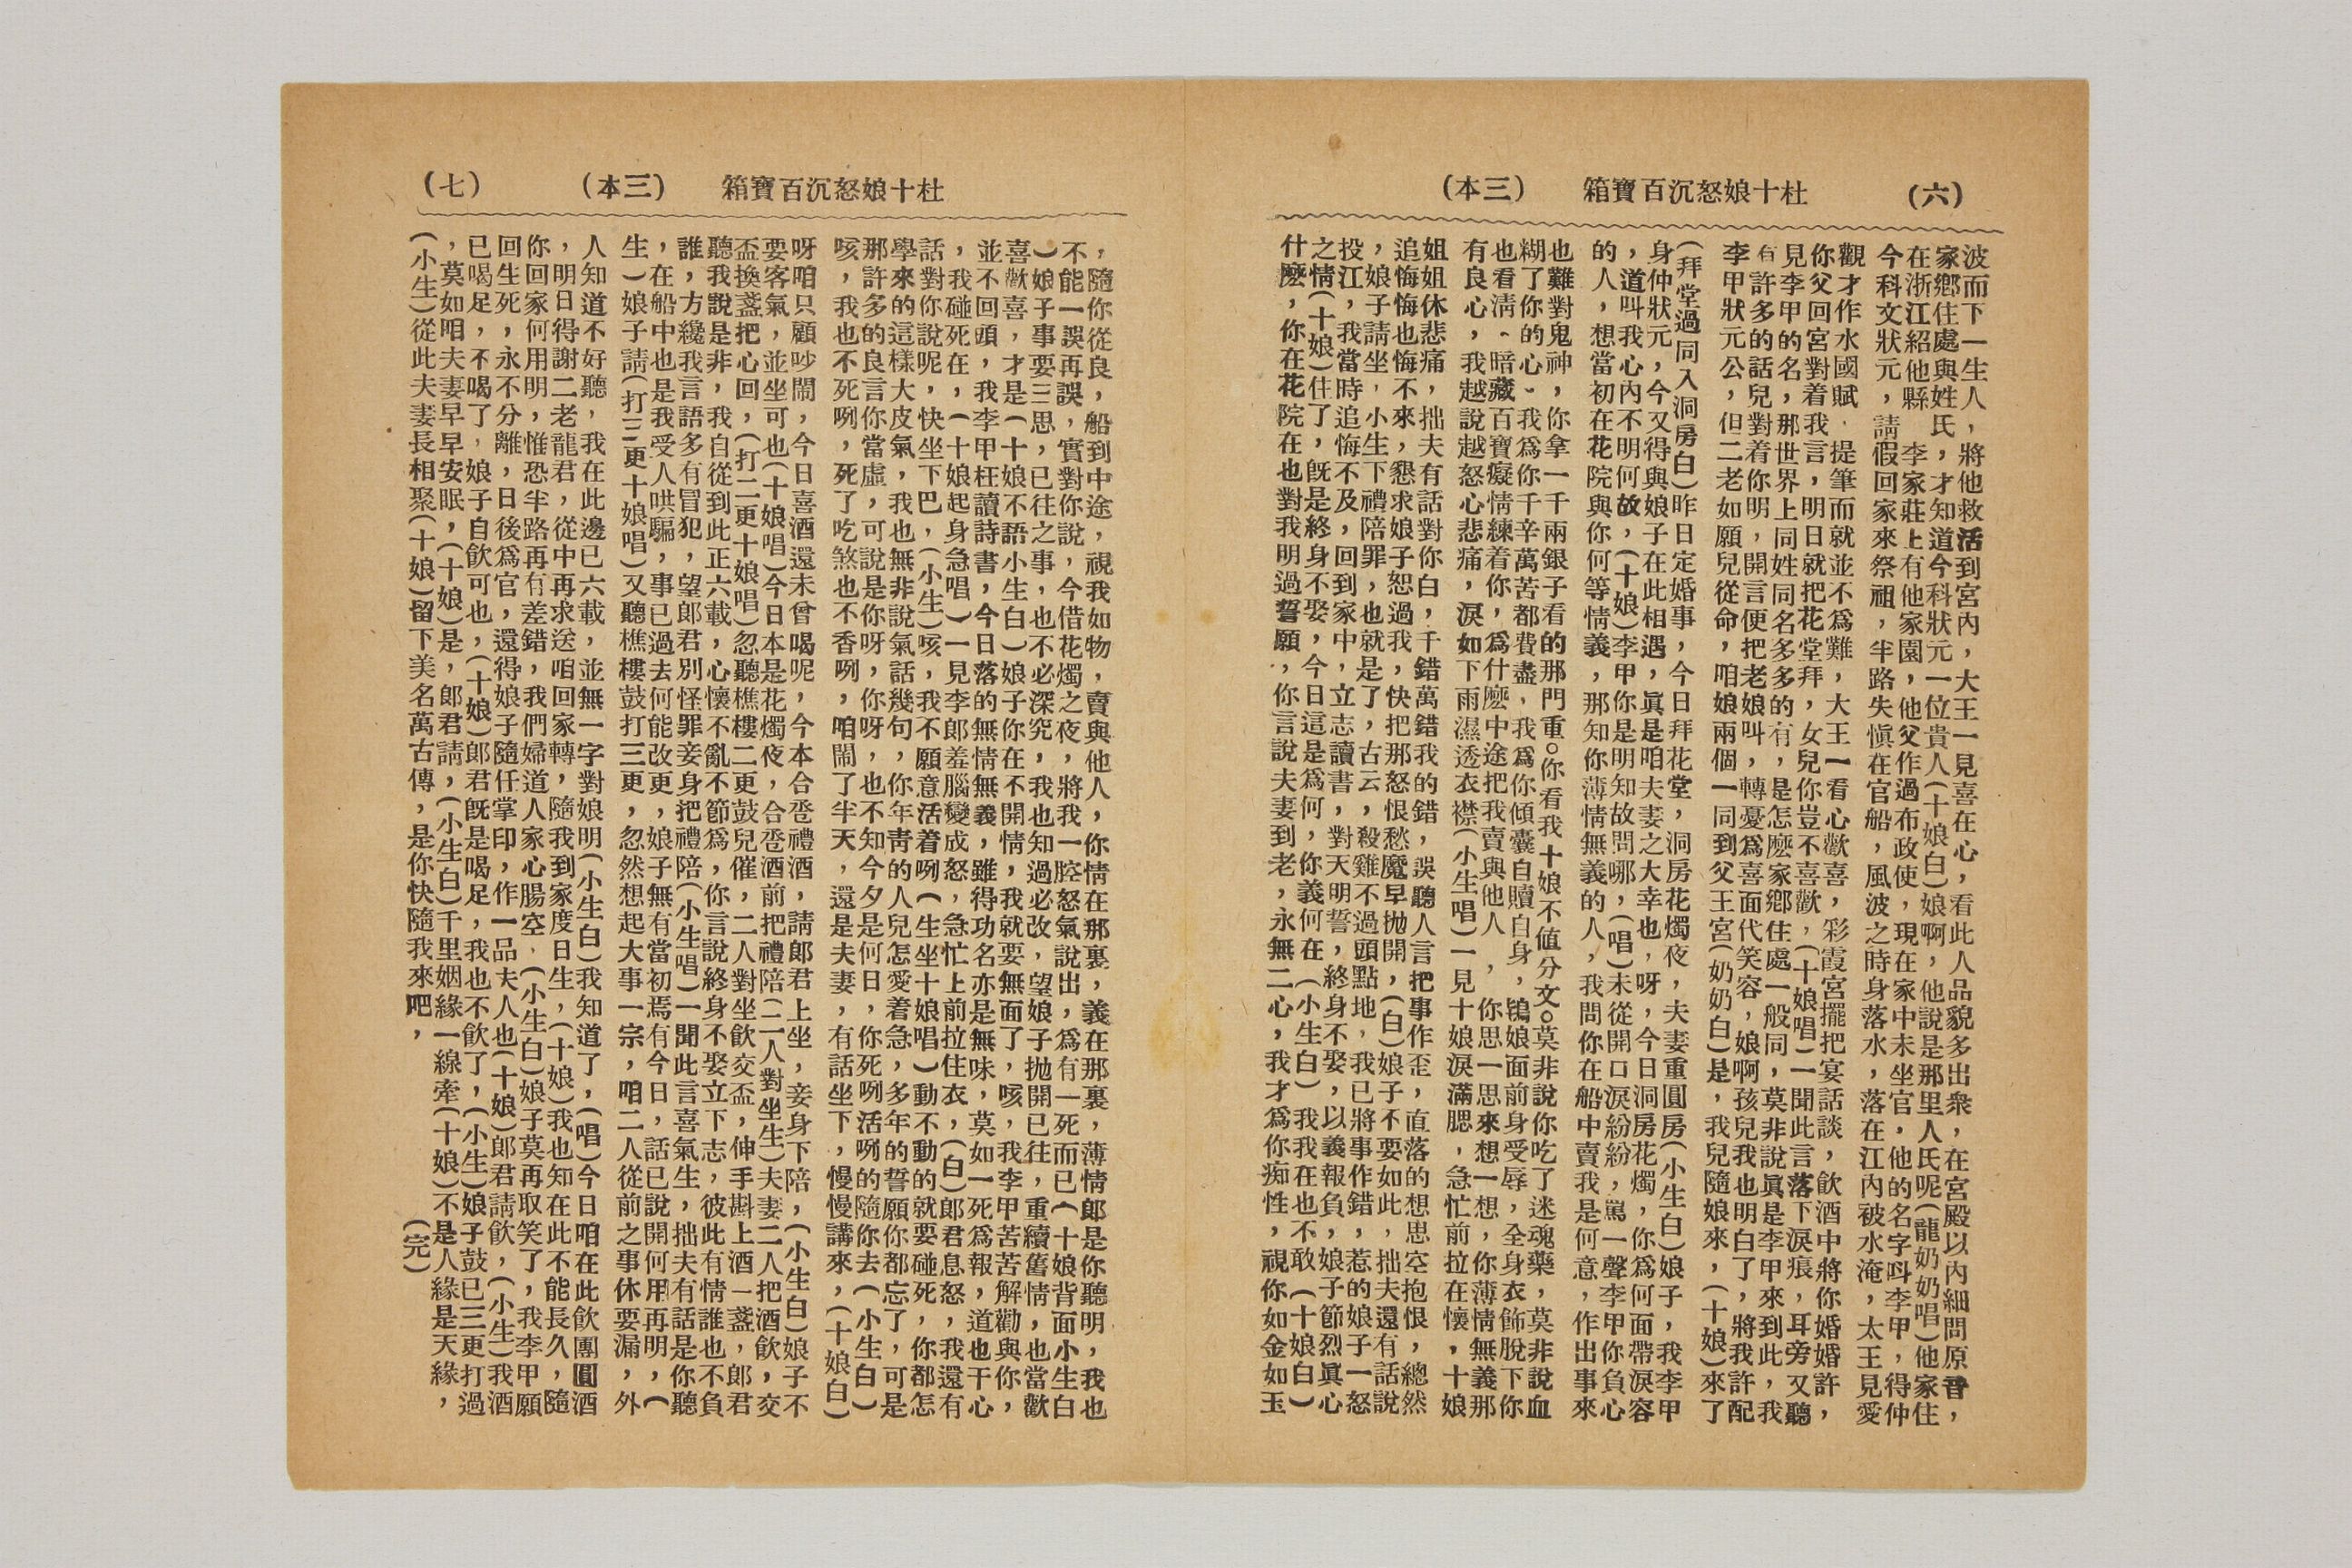 (六)　杜十娘怒沉百寶箱　(三本)
波而下一生人，將他救活到宮內，大王一見喜在心，看此人品貌多出衆，在宮殿以內細問原晋，
家鄉住處與姓氏，才知道今科狀元一位貴人(十娘白)娘啊，他說是那里人氏呢(龍奶奶唱)他家住
在浙江紹他縣　李家莊上有他家園，他父作過布政使，現在家中未坐官，他的名字呌李甲，得仲
今科文狀元，請假回家來祭祖，半路失愼在官船，風波之時身落水，落在江內被水淹，太王見愛
觀才作水國賦，提筆而就並不爲難，大王一看心歡喜，彩霞宮擺把宴話談，飲酒中將你婚婚許，
你父回宮對着我言，明日就把花堂拜，女兒你豈不喜歡，(十娘唱)一聞此言落下淚痕，耳旁又聽
見李甲的名，那世界上同姓同名多多的有，是怎麽家鄉住處一般同，莫非說眞是李甲來到此，我
有許多的話兒對着你明，開言便把老娘叫，轉憂爲喜面代笑容，娘啊孩兒我也明白了，將我許配
李甲狀元公，但二老如願兒從命，咱娘兩個一同到父王宮(奶奶白)是，我兒隨娘來，(十娘)來了
(拜堂過同入洞房白)昨日定婚事，今日拜花堂，洞房花燭夜，夫妻重圓房(小生白)娘子，我李甲
身仲狀元，今又得與娘子在此相遇，眞是咱夫妻之大幸也，呀，今日洞房花燭，你爲何面帶淚容
，道叫我心內不明何故，(十娘)李甲你是明知故問哪，(唱)未從開口淚紛紛，駡一聲李甲你負心
的人，想當初在花院與你何等情義，那知你薄情無義的人，我問你在船中賣我是何意，作出事來
也難對鬼神，你拿一千兩銀子看的那門重。你看我十娘不值分文。莫非說你吃了迷魂藥，莫非說血
糊了你的心，我爲你千辛萬苦都費盡，我爲你傾囊自贖自身，鴇娘面前身受辱，全身衣飾脫下你
也看淸，暗藏百寶癡情練着你，爲什麽中途把我賣與他人，你思一思來想一想，你薄情無義那
有良心，我越說越怒心悲痛，淚如下雨濕透衣襟(小生唱)一見十娘淚滿腮，急忙前拉在懷，十娘
姐姐休悲痛，拙夫有話對你白，千錯萬錯我的錯，誤聽人言把事作歪，直落的想思空抱恨，總然
追悔悔也悔不來，懇求娘子恕過我，快把那怒恨愁魔早抛開，(白)娘子不要如此，拙夫還有話說
，娘子請坐，小生下禮陪罪，也就是了，古云，殺雞不過頭點地，我已將事作錯，惹的娘子一怒
投江，我當時追悔不及，回到家中，立志讀書，對天明誓，終身不娶，以義報負，娘子節烈眞心
之情(十娘)住了，旣是終身不娶，今日這是爲何，你義何在　(小生白)　我我在也不敢　(十娘白)
什麽，你在花院在也對我明過誓願，你言說夫妻到老，永無二心，我才爲你痴性，視你如金如玉
杜十娘怒沉百寶箱　(三本)　(七)
，隨你從良，船到中途，視我如物，賣與他人，你情在那裏，義在那裏，薄情郎是你聽明，我也
不能一誤再誤，實對你說，今借花燭之夜，將我一腔怒氣說出，爲有一死而已(十娘背面小生白
)娘子事要三思，已往之事，也不必深究，我也知過必改，望娘子抛開已往，重續舊情，也當歡
喜歡喜，才是(十娘不語小生白)娘子你在不開情，我就要無面了，咳，我李甲苦苦解勸與你，
並不回頭，我李甲枉讀詩書，今日落的無情無義，雖得功名亦是無味，莫如一死爲報，道也干心
，我碰死在，(十娘起身急唱)一見李郎羞腦變成怒，急忙上前拉住衣，(白)郎君息怒，我還有
話對你說呢，快坐下巴，(小生)咳，我不願意活着咧(生坐十娘唱)動不動的就要碰死，你都怎
學來的這樣大皮氣，我也無非說氣話幾句，你年靑的人兒怎愛着急，多年的誓願你都忘了，可是
那許多的良言你當虛，可說是你呀，你呀，也不知今夕是何日，你死咧活咧的隨你去(小生白)
咳，我也不死咧，死了吃煞也不香咧，咱鬧了半天，還是夫妻，有話坐下，慢慢講來，(十娘白)
呀咱只顧吵鬧，今日喜酒還未曾喝呢，今本合卺禮酒，請郎君上坐，妾身下陪，(小生白)娘子不
要客氣，並坐可也(十娘唱)今日本是花燭夜，合卺酒前把禮陪(二人對坐生)夫妻二人把酒飲，交
盃換盞把心回，(打二更十娘唱)忽聽樵樓二更鼓兒催，二人對坐飲交盃，伸手斟上酒一盞，郎君
聽我說是非，我自從到此正六載，心懷不亂不節爲，你言說終身不娶立下志，彼此有情誰也不負
誰，方纔我言語多有冒犯，望郎君別怪罪妾身把禮陪(小生唱)一聞此言喜氣生，拙夫有話是你聽
，在船中也是我受人哄騙，事已過去何能改更，娘子無有當初焉有今日，話已說開何用再明，(
生)娘子請(打三更十娘唱)又聽樵樓鼓打三更，忽然想起大事一宗，咱二人從前之事休要漏，外
人知道不好聽，我在此邊已六載，並無一字對娘明(小生白)我知道了，(唱)今日咱在此飲團圓酒
，明日得謝二老龍君，從中再求送咱回家轉，隨我到家度日生，(十娘)我也知在此不能長久，隨
你回家何用明，惟恐半路再有差錯，我們婦道人家心腸空，(小生白)娘子莫再取笑了，我李甲願
回生死，永不分離，日後爲官，還得娘子隨任掌印，作一品夫人也(十娘)郎君請飲，(小生)我酒
已喝足，不喝了，娘子自飲可也，(十娘)郎君旣是喝足，我也不飲了，(小生)娘子鼓已三更打過
，莫如咱夫妻早早安眠，(十娘)是，郎君請，(小生白)千里姻緣一線牽(十娘)不是人緣是天緣，
(小生)從此夫妻長相聚(十娘)留下美名萬古傳，是你快隨我來吧，　(完)